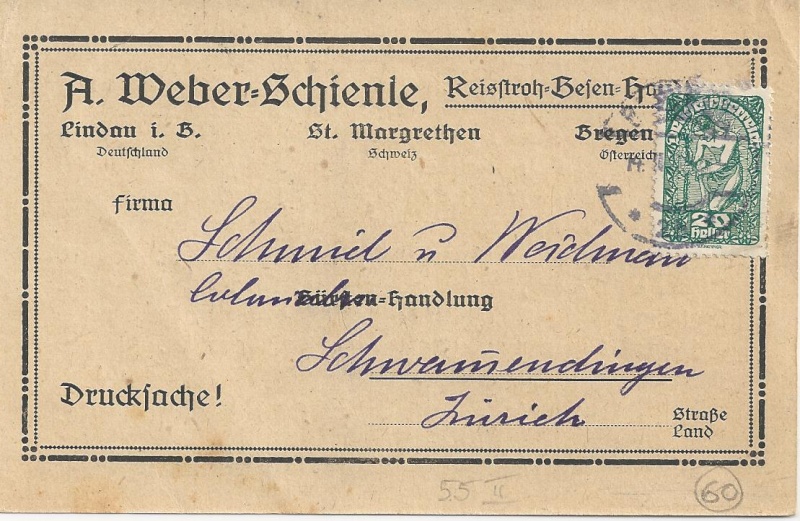 A. Weber-Schienle, Reisstroh-Besen-Ha
Lindau i. B. St. Margrethen Bregen
Deutschland Schweiz Österreich
Firma
Schmid u Weidman
Bürsten-Handlung
Schwamendingen
Zürich
Drucksache!
Straße
Land
20
Heller
55 II
60